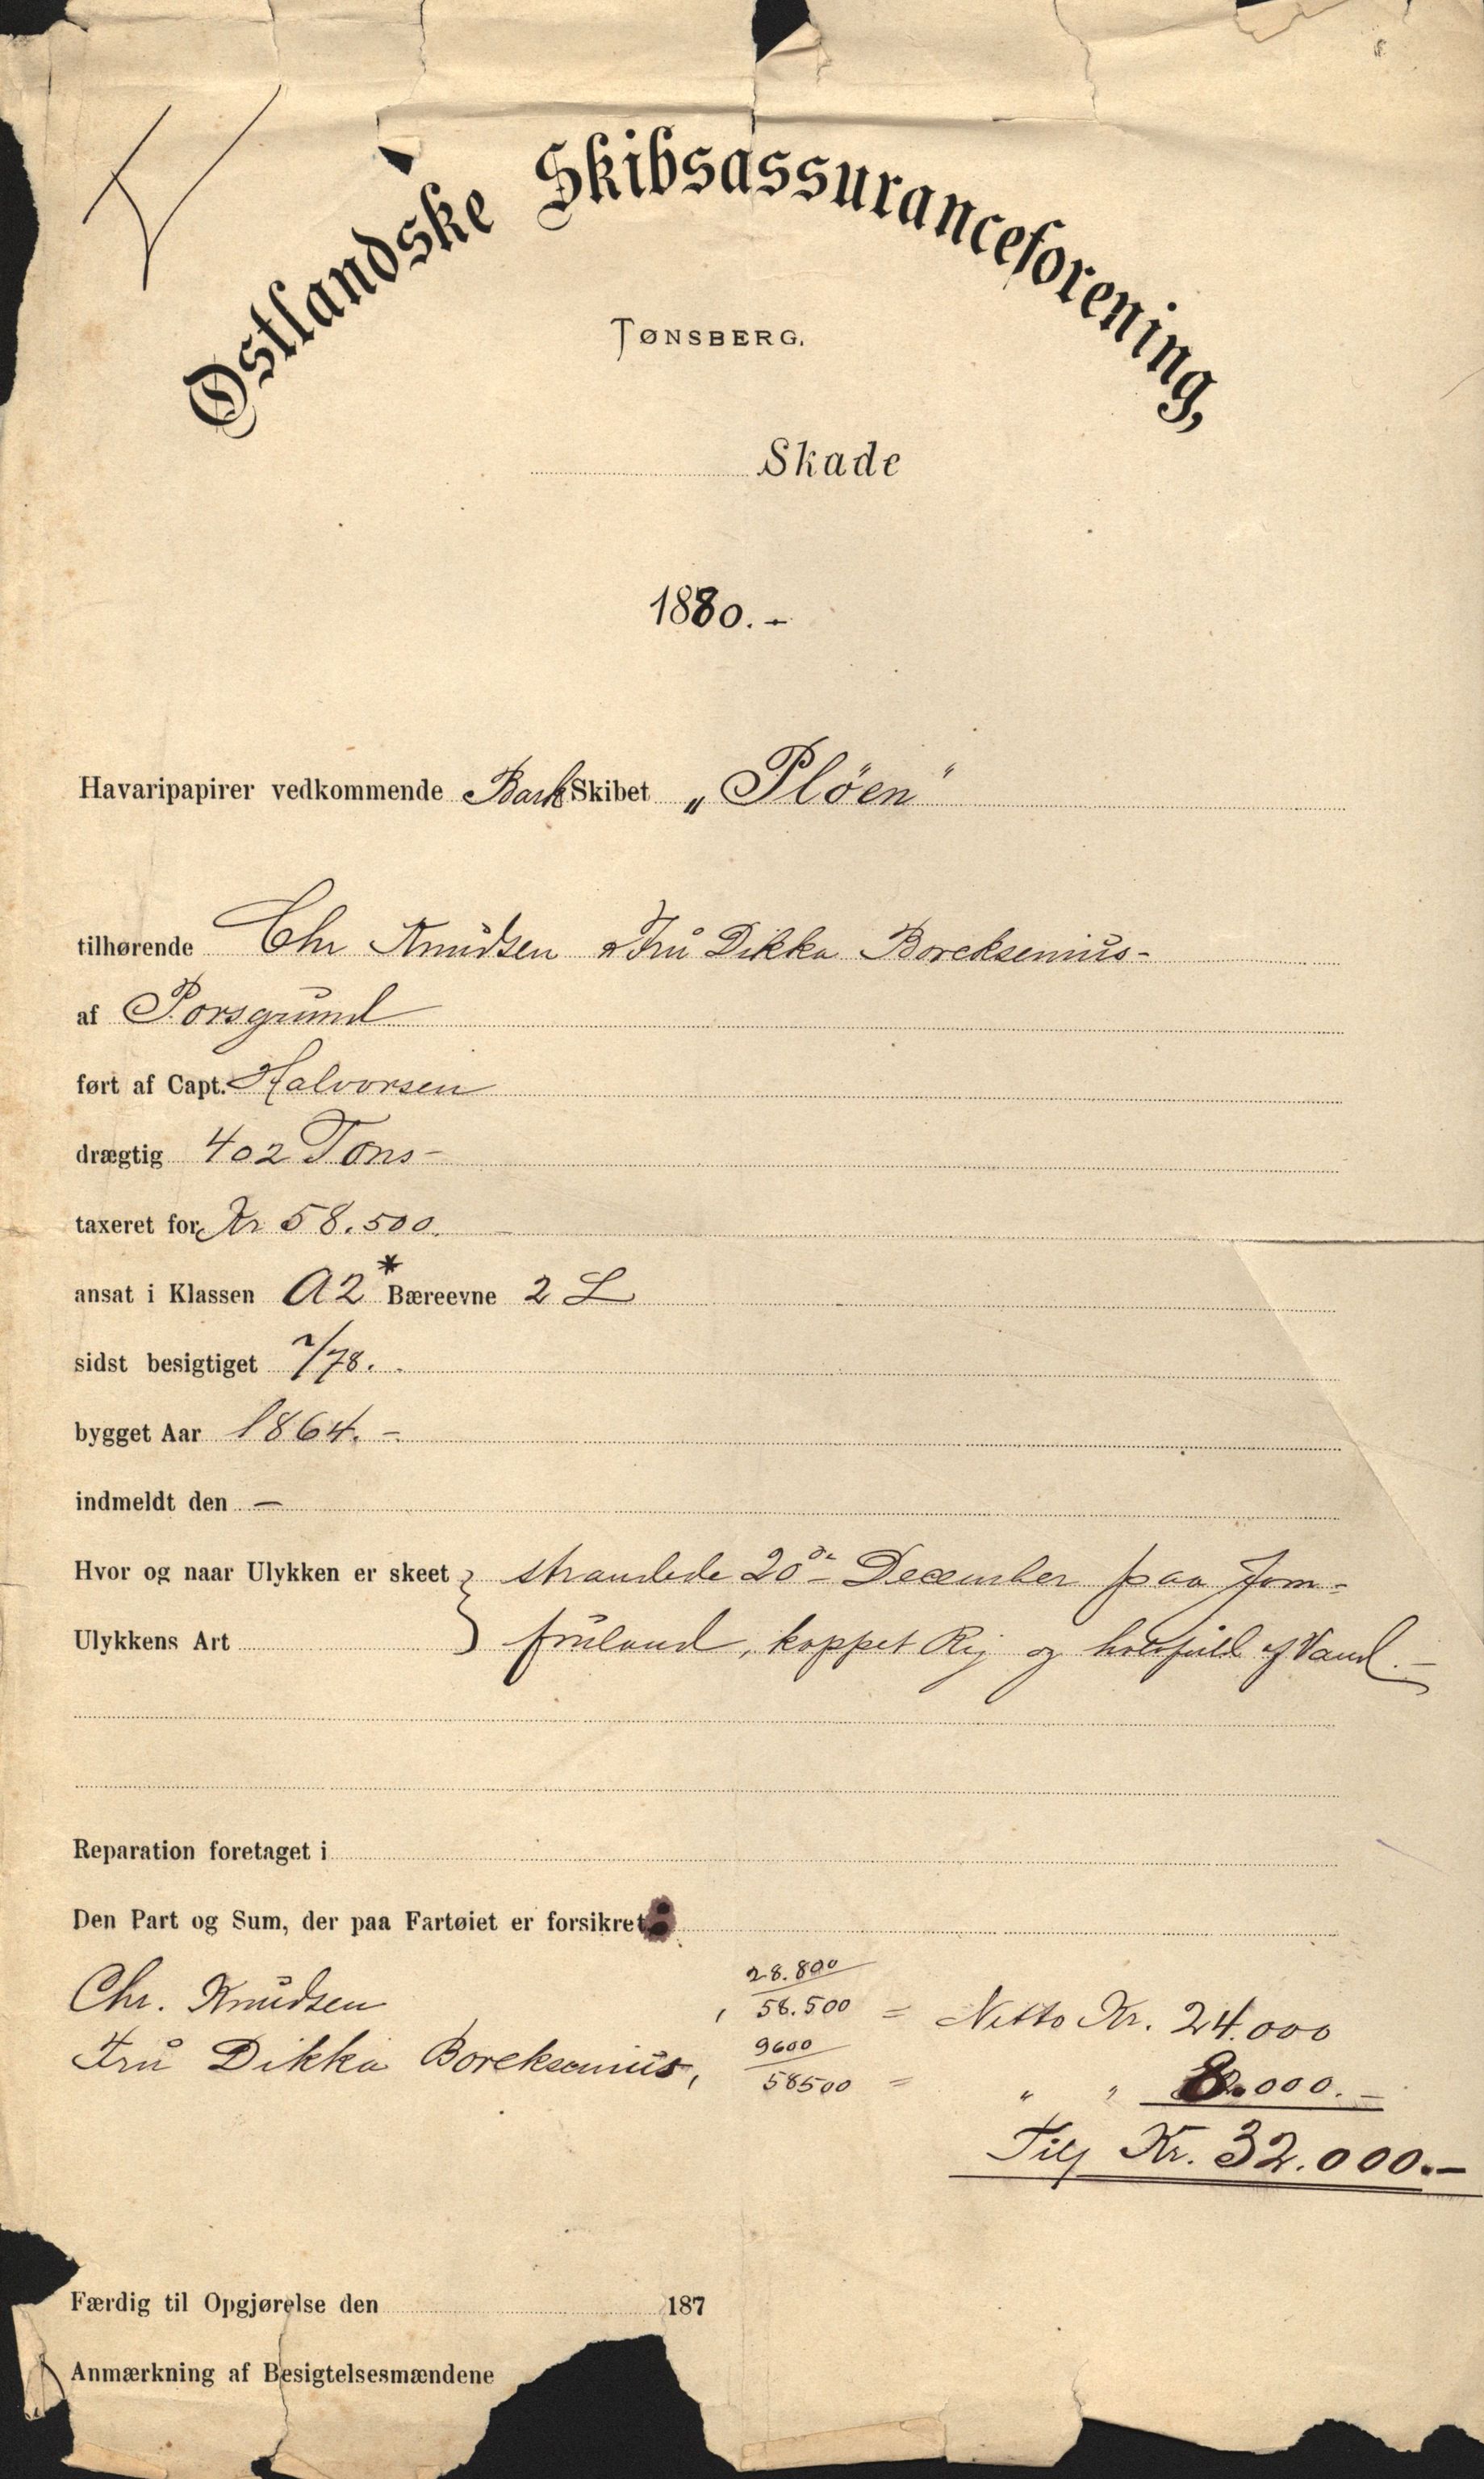 Østlandske Skibsassuranceforening,
TØNSBERG.
Skade
1880. -
Havaripapirer vedkommende Bark Skibet „Plöen"
tilhørende Chr Knudsen & Fru Dikka Borcksenius -
af Porsgrund
ført af Capt. Halvorsen
drægtig 402 Tons -
taxeret for Kr 58.500.
ansat i Klassen A2* Bæreevne 2 L
sidst besigtiget /78.
bygget Aar 1864. -
indmeldt den -
Hvor og naar Ulykken er skeet } strandede 20de December paa Jom=
Ulykkens Art fruland, kappet Rig og halvfuld af Vand. -
Reparation foretaget i
Den Part og Sum, der paa Fartøiet er forsikret:
Chr. Knudsen, 28.800/58.500 = Netto Kr. 24.000
Fru Dikka Borcksenius, 9600/58500 = " " 8.000. -
Tils Kr. 32.000. -
Færdig til Opgjørelse den 187
Anmærkning af Besigtelsesmændene